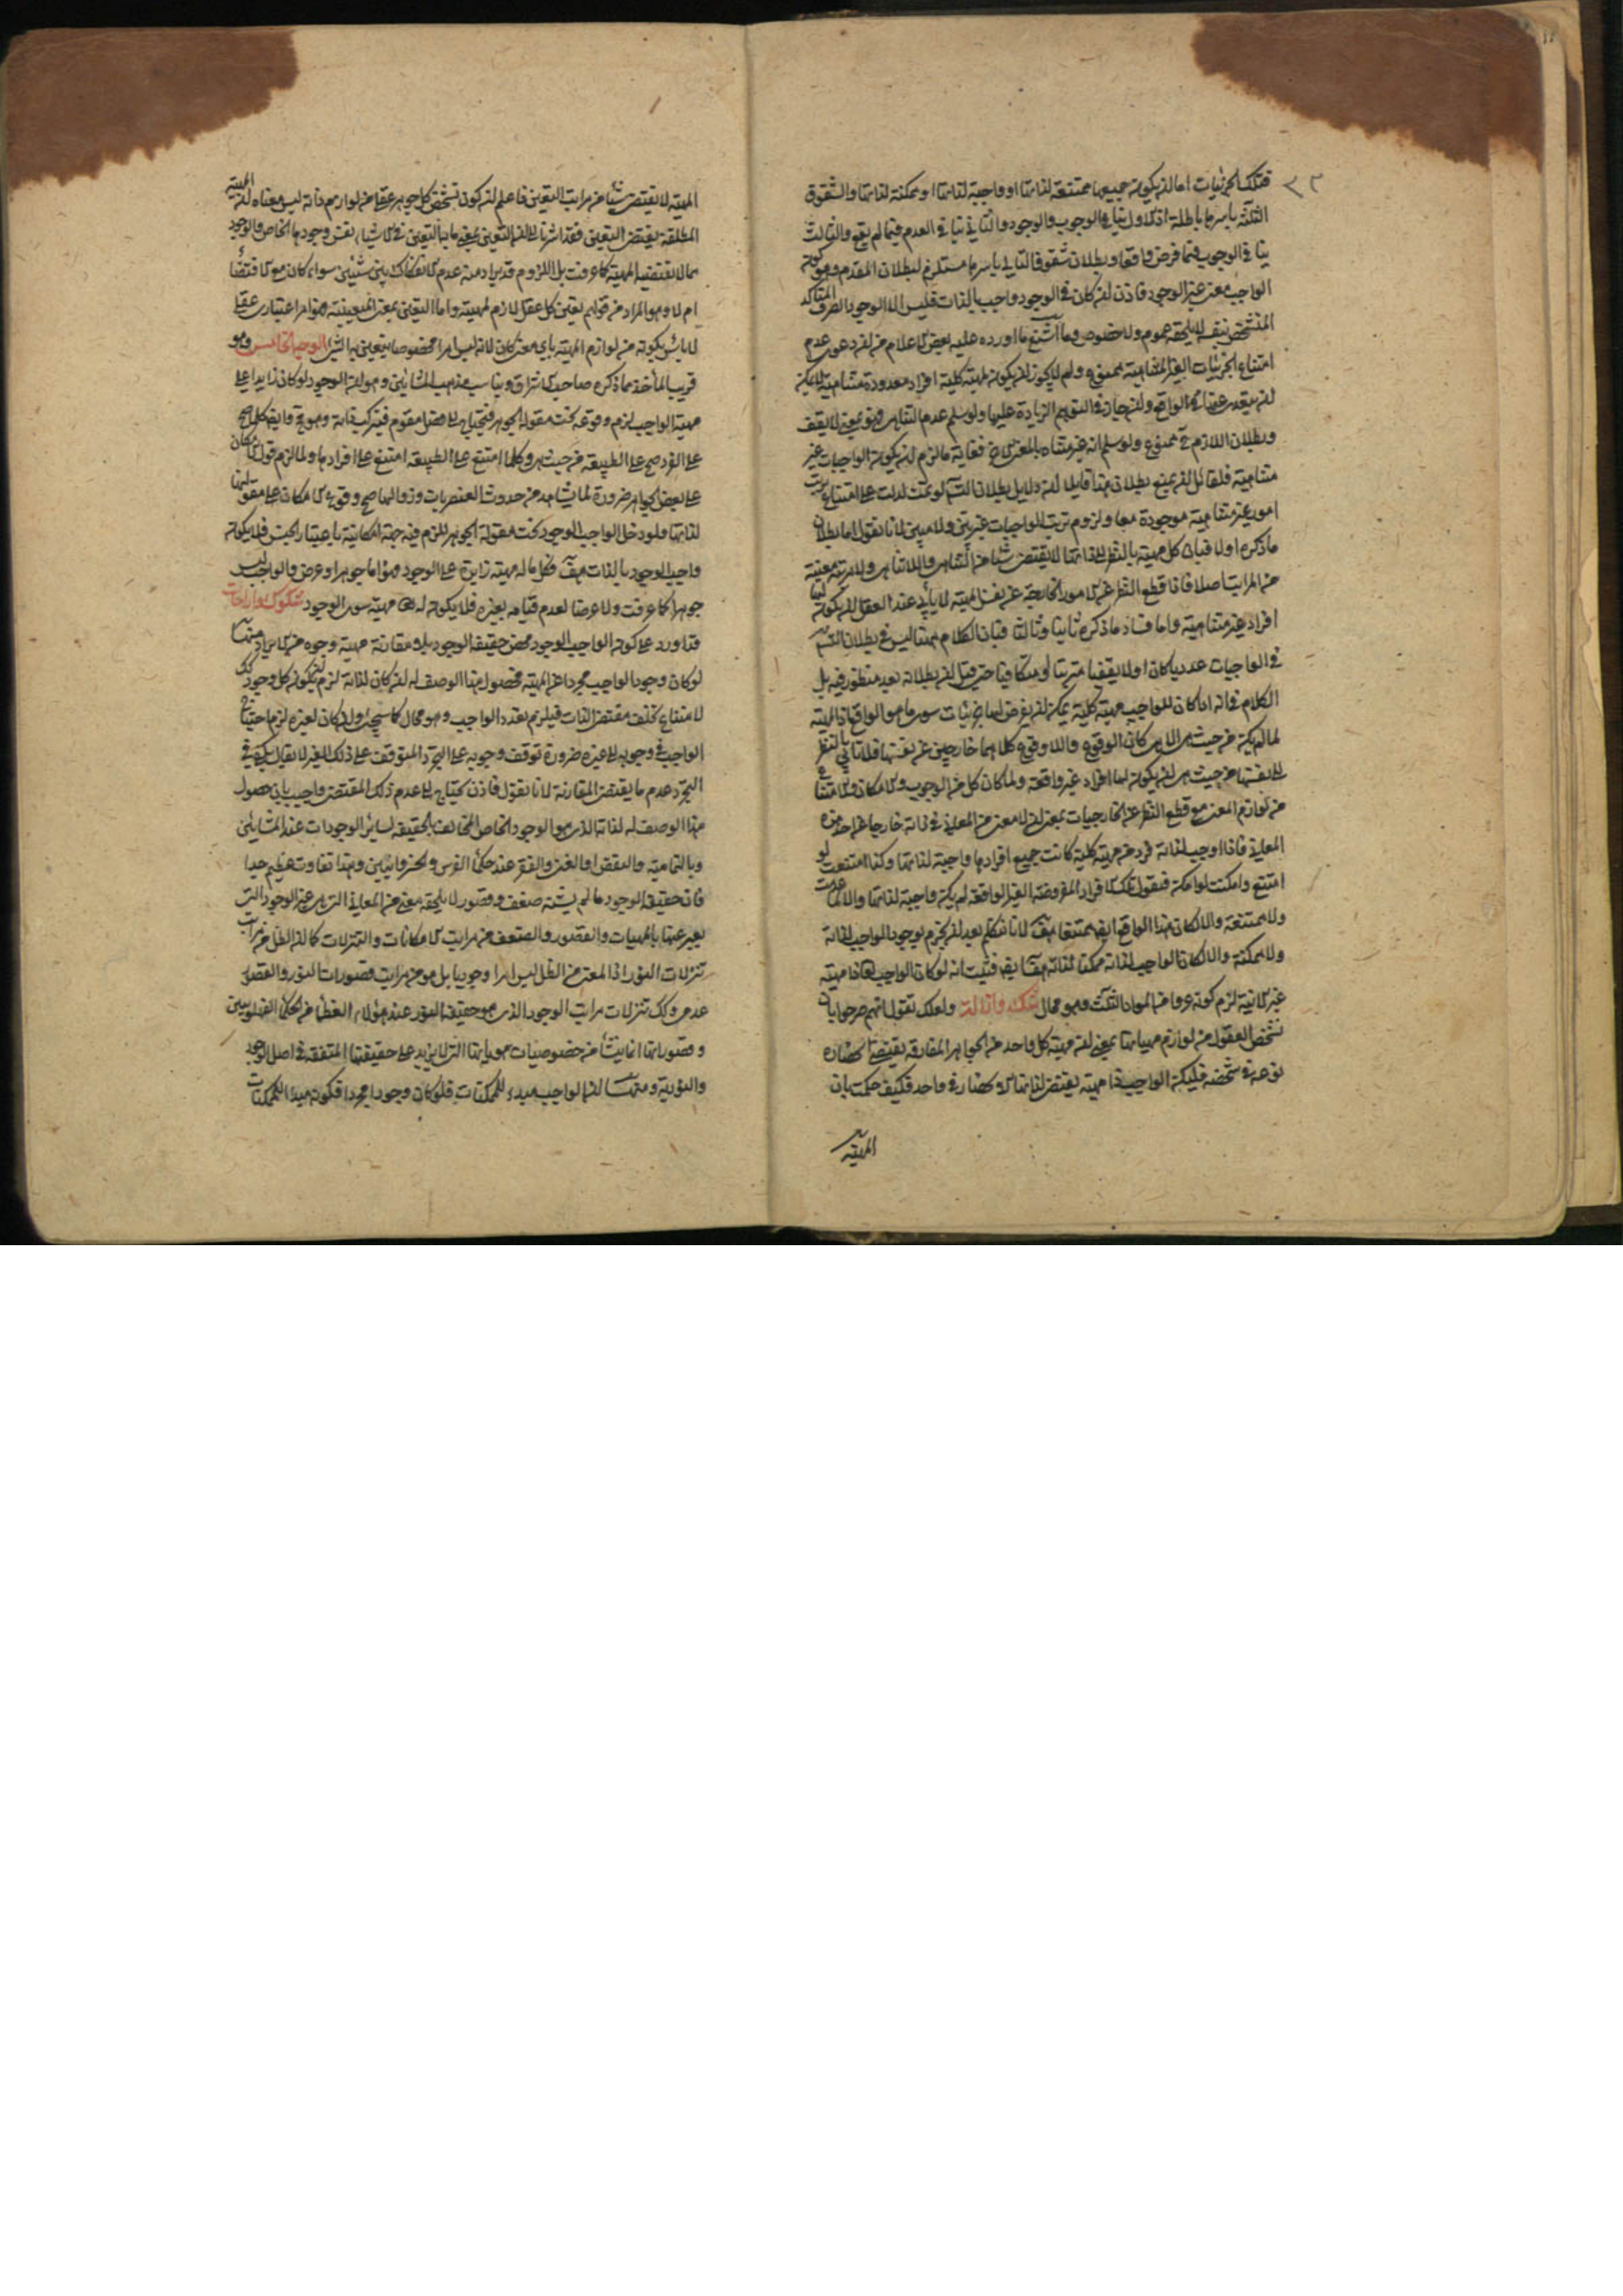 فتلك الجزئيات اما ان يكون جميعها ممتنعة لذاتها او واجبة لذاتها او ممكنة لذاتها والشقوق
الثلثة باسرها باطلة اذ الاول ينافي الوجوب والوجود والثاني ينافي العدم فيما لم يقع والثالث
ينافي الوجوب فيما فرض واقعا وبطلان شقوق التالي باسرها مستلزم لبطلان المقدم وهو كون
الواجب معنى غير الوجود فاذن ان كان في الوجود واجب بالذات فليس الا الوجود الصرف المتأكد
المتشخص بنفسه لا يلحقه عموم ولا خصوص وما اشنع ما اورده عليه بعض الاعلام من ان دعوى عدم
امتناع الجزئيات الغير المتناهية ممنوع ولم لا يجوز ان يكون لمهية كلية افراد معدودة متناهية لا يمكن
ان يتعدى عنها في الواقع وان جاز في التوهم الزيادة عليها ولو سلم عدم التناهي فهو بمعنى لا يقف
وبطلان اللازم ح ممنوع ولو سلم انه غير متناه بالمعنى الاخر فغاية ما لزم ان يكون الواجبات غير
متناهية فلقائل ان يمنع بطلان هذا قايلا ان دلايل بطلان التس لو تمت لدلت على امتناع ترتب
امور غير متناهية موجودة معا ولزوم ترتب الواجبات غير بين ولا مبين لانا نقول اما بطلان
ما ذكره اولا فبان كل مهية بالنظر الى ذاتها لا يقتضي شيئا من التناهي واللاتناهي ولا مرتبة معينة
من المراتب اصلا فاذا قطع النظر عن الامور الخارجية عن نفس المهية لا يأبى عند العقل ان يكون لها
افراد غير متناهية واما فساد ما ذكره ثانيا وثالثا فبان الكلام ههنا ليس في بطلان التس
في الواجبات عدديا كان او لا يقفيا مترتبا او متكافيا حتى قيل ان بطلانه بعد منظور فيه بل
الكلام في انه اذا كان للواجب مهية كلية يمكن ان يفرض لها جزئيات سوى ما هو الواقع اذ المهية
لما لم يكن من حيث هي هي كان الوقوع واللاوقوع كلاهما خارجين عن نفسها فلا تأبى بالنظر
الى نفسها من حيث هي ان يكون لها افراد غير واقعة ولما كان كل من الوجوب والامكان والامتناع
من لوازم المعنى مع قطع النظر عن الخارجيات بمعنى ان لا معنى من المعاني في ذاته خارجا عن احد هذه
المعاني فاذا وجب لذاته فرد من مهية كلية كانت جميع افرادها واجبة لذاتها وكذا امتنعت لو
امتنع وامكنت لو امكن فنقول تلك الافراد المفروضة الغير الواقعة لم يكن واجبة لذاتها والا لما عدمت
ولا ممتنعة والا لكان هذا الواقع ايضا ممتنعا هف لانا نتكلم بعد ان نجزم بوجود الواجب لذاته
ولا ممكنة والا لكان الواجب لذاته ممكنا لذاته هف ايضا فثبت انه لو كان الواجب ذا مهية
غير الانية لزم كونه عروا من المواد الثلث وهو محال شك وازالة ولعلك تقول انهم صرحوا بان
تشخص العقول من لوازم مهياتها بمعنى ان مهية كل واحد من الجواهر المفارقة يقتضي انحصاره
نوعه في شخصه فليكن الواجب ذا مهية يقتضي لذاتها الانحصار في واحد فكيف حكمت بان
المهية
المهية لا يقتضي شيئا من مراتب التعين فاعلم ان كون تشخص كل جوهر عقلي من لوازم ذاته ليس معناه ان المهية
المطلقة يقتضي التعين فقد اشرنا الى ان التعين بمعنى ما به التعين في الاشياء نفس وجودها الخاص والوجود
مما لا يقتضيه المهية كما عرفت بل اللزوم قد يراد منه عدم الانفكاك بين شيئين سواء كان مع الاقتضاء
ام لا وهو المراد من قولهم تعين كل عقل لازم لمهيته واما التعين بمعنى المتعينية فهو امر اعتباري عقلي
لا بأس بكونه من لوازم المهية باي معنى كان لانه ليس امرا مخصوصا يتعين به الشيء الوجه الخامس وهو
قريب المأخذ مما ذكره صاحب الاشراق ويناسب مذهب المشائين وهو ان الوجود لو كان زايدا على
مهية الواجب لزم وقوعه تحت مقولة الجوهر فيحتاج الى فصل مقوم فيتركب ذاته وهو مح وايضا كل ما صح
على الفرد صح على الطبيعة من حيث هي وكلما امتنع على الطبيعة امتنع على افرادها ولما لزم قول الامكان
على بعض الجواهر ضرورة لما يشاهد من حدوث العنصريات وزوالها صح وقوع الامكان على مقولتها
لذاتها فلو دخل الواجب الوجود تحت مقولة الجوهر للزم فيه جهة امكانية باعتبار الجنس فلا يكون
واجب الوجود بالذات هف فكل ما له مهية زايدة على الوجود فهو اما جوهر او عرض والواجب ليس
جوهرا كما عرفت ولا عرضا لعدم قيامه بغيره فلا يكون له مهية سوى الوجود شكوك وازاحات
قد اورد على كون الواجب الوجود محض حقيقة الوجود بلا مقارنة مهية وجوه من الايراد منها
لو كان وجود الواجب مجردا عن المهية فحصول هذا الوصف له ان كان لذاته لزم ان يكون كل وجود كك
لامتناع تخلف مقتضى الذات فيلزم تعدد الواجب وهو محال كما سيجيء وان كان لغيره لزم احتياج
الواجب في وجوبه الى غيره ضرورة توقف وجوبه على التجرد المتوقف على ذلك الغير لا يقال يكفي في
التجرد عدم ما يقتضي المقارنة لانا نقول فاذن يحتاج الى عدم ذلك المقتضي واجيب بان حصول
هذا الوصف له لذاته الذي هو الوجود الخاص المخالف بالحقيقة لسائر الوجودات عند المشائين
وبالتمامية والنقص او الغنى والفقر عند حكماء الفرس والخسروانيين وهذا تفاوت عظيم جدا
فان حقيقة الوجود ما لم يشبه ضعف وقصور لا يلحقه معنى من المعاني التي هي غير الوجود التي
يعبر عنها بالمهيات والقصور والضعف من مراتب الامكانات والتنزلات كما ان الظل من مراتب
تنزلات النور اذ المعنى من الظل ليس امرا وجوديا بل هو من مراتب قصورات النور والقصور
عدمي وكك تنزلات مراتب الوجود الذي هو حقيقة النور عند هؤلاء العظماء من الحكماء الفهلويين
وقصوراتها انما ينشأ من خصوصيات هوياتها التي لا يزيد على حقيقتها المتفقة في اصل الوجود
والنورية ومنها ان الواجب مبدء للممكنات فلو كان وجودا مجردا فكونه مبدءا للممكنات